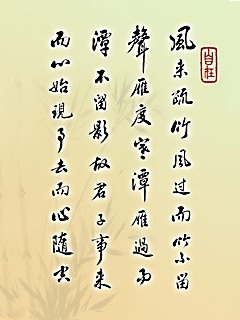 風来疏竹風过而竹不留
聲雁度寒潭雁過而
潭不留影故君子事来
而心始現事去而心隨空
自在